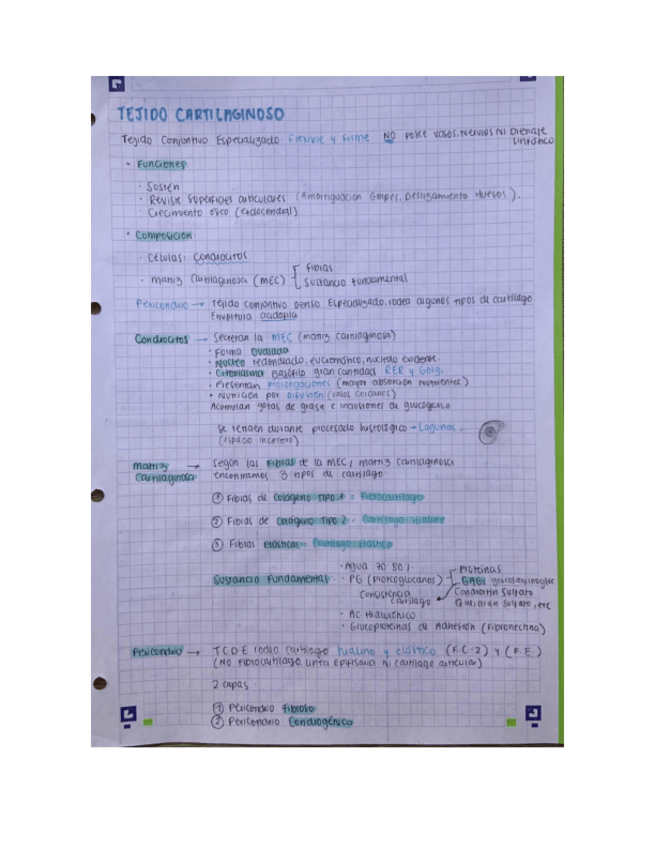 TEJIDO CARTILAGINOSO
Tejido Conjuntivo Especializado Flexible y Firme NO posee vasos, nervios ni Drenaje
Linfático
• Funciones:
· Sostén
· Reviste superficies articulares (Amortiguación Golpes, Deslizamiento Huesos).
· Crecimiento óseo (endocondral)
• Composición
· Células: condrocitos
· Matriz Cartilaginosa (MEC) Fibras
Sustancia Fundamental
Pericondrio → Tejido conjuntivo Denso Especializado, rodea algunos tipos de cartílago
Envoltura acidofila
Condrocitos → Secretan la MEC (matriz cartilaginosa)
• Forma Ovalada
• Núcleo redondeado, eucromático, nucleolo evidente
• Citoplasma Basófilo gran cantidad RER y Golgi
• Presentan prolongaciones (mayor absorción nutrientes)
• Nutrición por difusión (vasos cercanos)
Acumulan gotas de grasa e inclusiones de glucógeno
Se retraen durante procesado histológico → Lagunas.
(espacio incoloro)
Matriz → Según las Fibras de la MEC, matriz cartilaginosa
Cartilaginosa encontramos 3 tipos de cartílago
① Fibras de Colágeno Tipo 1 = Fibrocartílago
② Fibras de Colágeno Tipo 2 = Cartílago Hialino
③ Fibras Elásticas = Cartílago Elástico
Sustancia Fundamental • Agua 70 80%
• PG (Proteoglucanos) Proteinas
GAGs glucosaminoglic
Consistencia cartílago Condroitin Sulfato
Queratan Sulfato, etc
• AC Hialurónico
• Glucoproteinas de Adhesión (Fibronectina)
Pericondrio → T.C.D.E rodea cartílago hialino y elástico (F.C-2) y (F.E)
(NO Fibrocartílago Linea Epifisaria Ni cartílago articular)
2 capas
① Pericondrio Fibroso
② Pericondrio Condrogénico